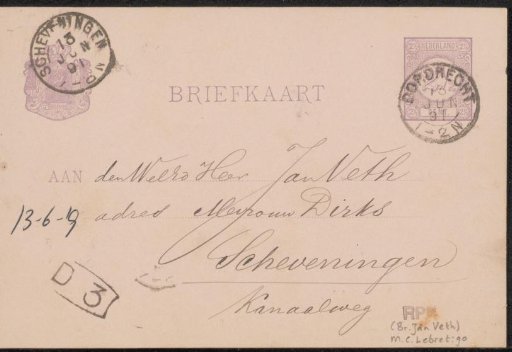 SCHEVENINGEN
13
JUN
91
NEDERLAND
DORDRECHT
13
JUN
91
1-2N
BRIEFKAART
AAN den WelEd Heer Jan Veth
13-6-19 adres Mevrouw Dirks
Scheveningen
Kanaalweg
D 3
RP
(Br. Jan Veth)
M.C. Lebret: 90